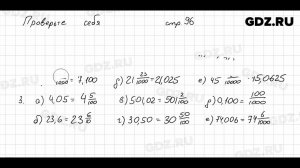 GDZ.RU
Проверьте себя стр. 96
/1000 = 7,100 д) 21 25/1000 = 21,025 е) 45 /10000 = 15,0625
3. а) 4,05 = 4 5/100 в) 501,02 = 501 2/100 д) 0,100 = 100/1000
б) 23,6 = 23 6/10 г) 30,50 = 30 50/100 е) 74,06 = 74 6/100
GDZ.RU